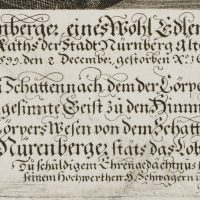 nberger eines Wohl Edlen
Raths der Stadt Nürnberg Älte
599. den 2 December, gestorben A:º
Schatten nach dem der Cörpe
gesinnte Geist zu den Him̃
örpers Wesen von dem Schatte
Nürenberger stäts das Lob
Zu schuldigem Ehrengedächtnus
seinem Hochwerthen H. Schwagern